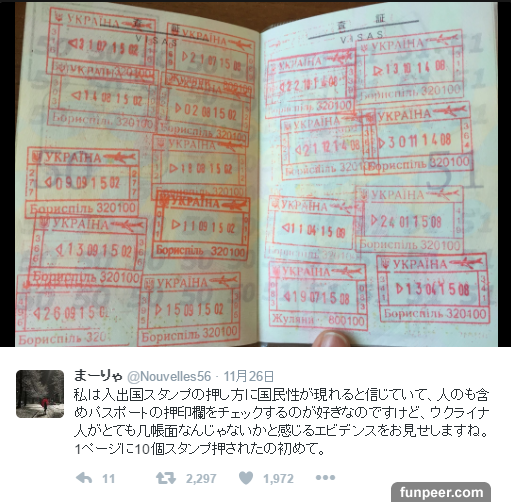 査 証
VISAS
УКРАЇНА
31 07 15 02
УКРАЇНА
21 07 15 02
14 08 15 02
Бориспіль 320100
УКРАЇНА
02 08 15 02
Бориспіль 320100
УКРАЇНА
277
09 09 15 02
Бориспіль 320100
УКРАЇНА
08 15 02
УКРАЇНА
13 09 15 02
Бориспіль 320100
УКРАЇНА
11 09 15 02
Бориспіль 320100
УКРАЇНА
26 09 15
Бориспіль 320100
УКРАЇНА
15 09 15 02
Бориспіль 320100
査 証
VISAS
УКРАЇНА
22 10 14 08
УКРАЇНА
13 10 14 08
Бориспіль 320100
УКРАЇНА
21 12 14 08
Бориспіль
УКРАЇНА
30 11 14 08
Бориспіль 320100
УКРАЇНА
11 04 15 08
УКРАЇНА
24 01 15 08
Бориспіль 320100
УКРАЇНА
19 07 15 08
Жуляни 600100
УКРАЇНА
13 04 15 08
Бориспіль 320100
まーりゃ @Nouvelles56 · 11月26日
私は入出国スタンプの押し方に国民性が現れると信じていて、人のも含
めパスポートの押印欄をチェックするのが好きなのですけど、ウクライナ
人がとても几帳面なんじゃないかと感じるエビデンスをお見せしますね。
1ページに10個スタンプ押されたの初めて。
11 2,297 1,972
funpeer.com